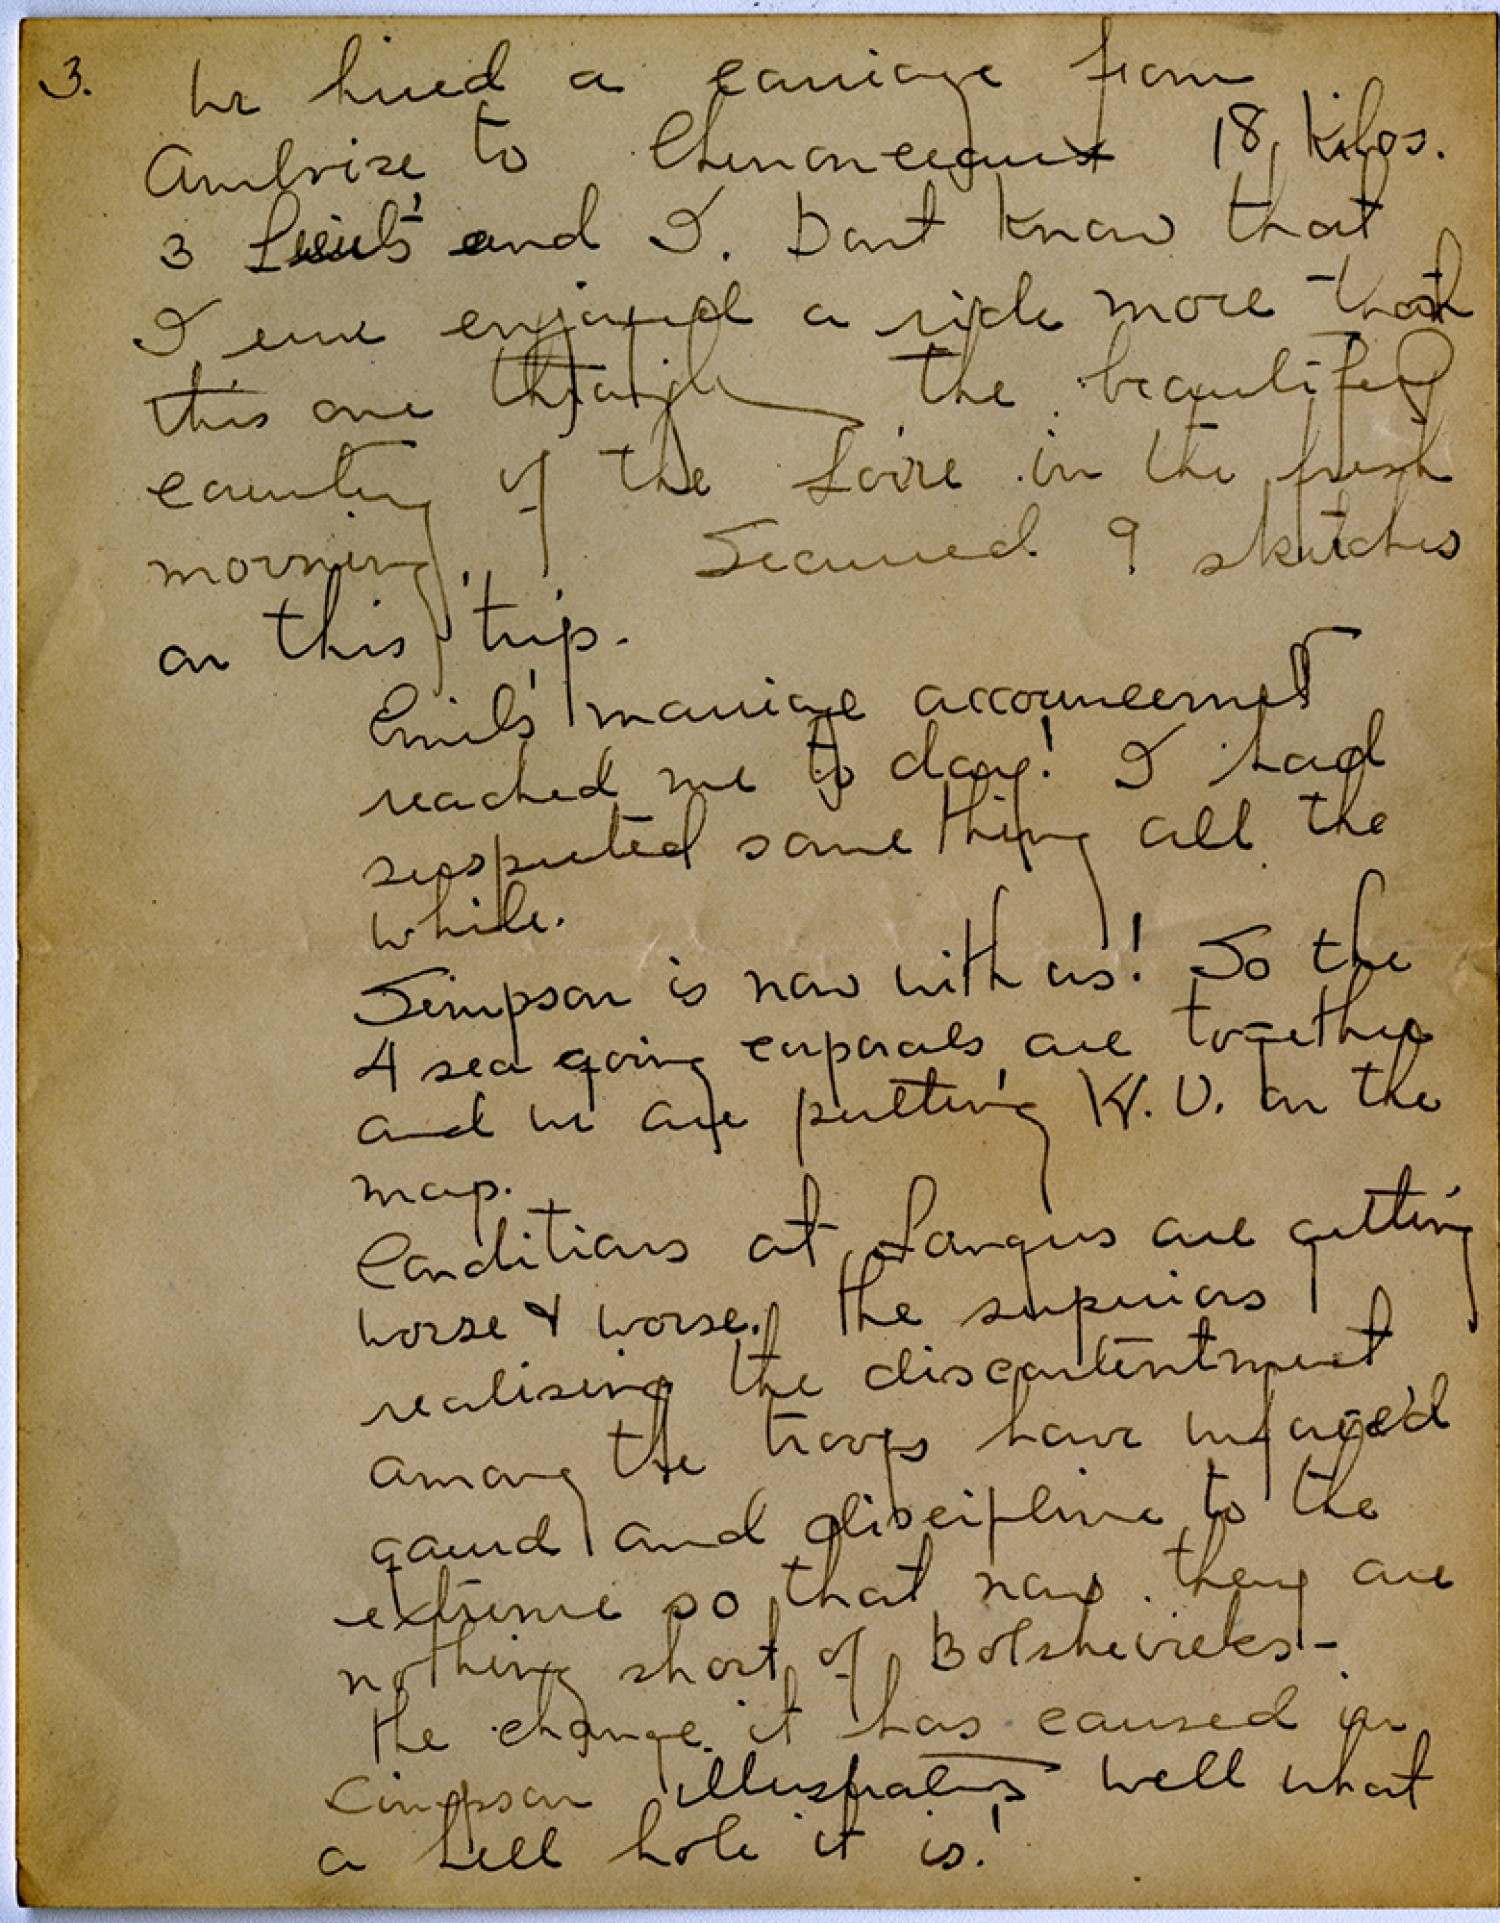 3. We hired a carriage from
Amboise to Chenonceaux 18 Kilos.
3 Lieuts' and I. Dont know that
I ever enjoyed a ride more than
this one through the beautiful
country of the Loire in the fresh
morning. Secured 9 sketches
on this trip.
Emil's marriage accouncement
reached me to day! I had
suspected something all the
while.
Simpson is now with us! So the
4 sea going corporals are together
and we are putting W. U. on the
map.
Conditions at Langres are getting
worse & worse. The superiors
realising the discontentment
among the troops have
guard and discipline to the
extreme so that now they are
nothing short of Bolshevicks -
The change it has caused in
Simpson illustrates well what
a hell hole it is!